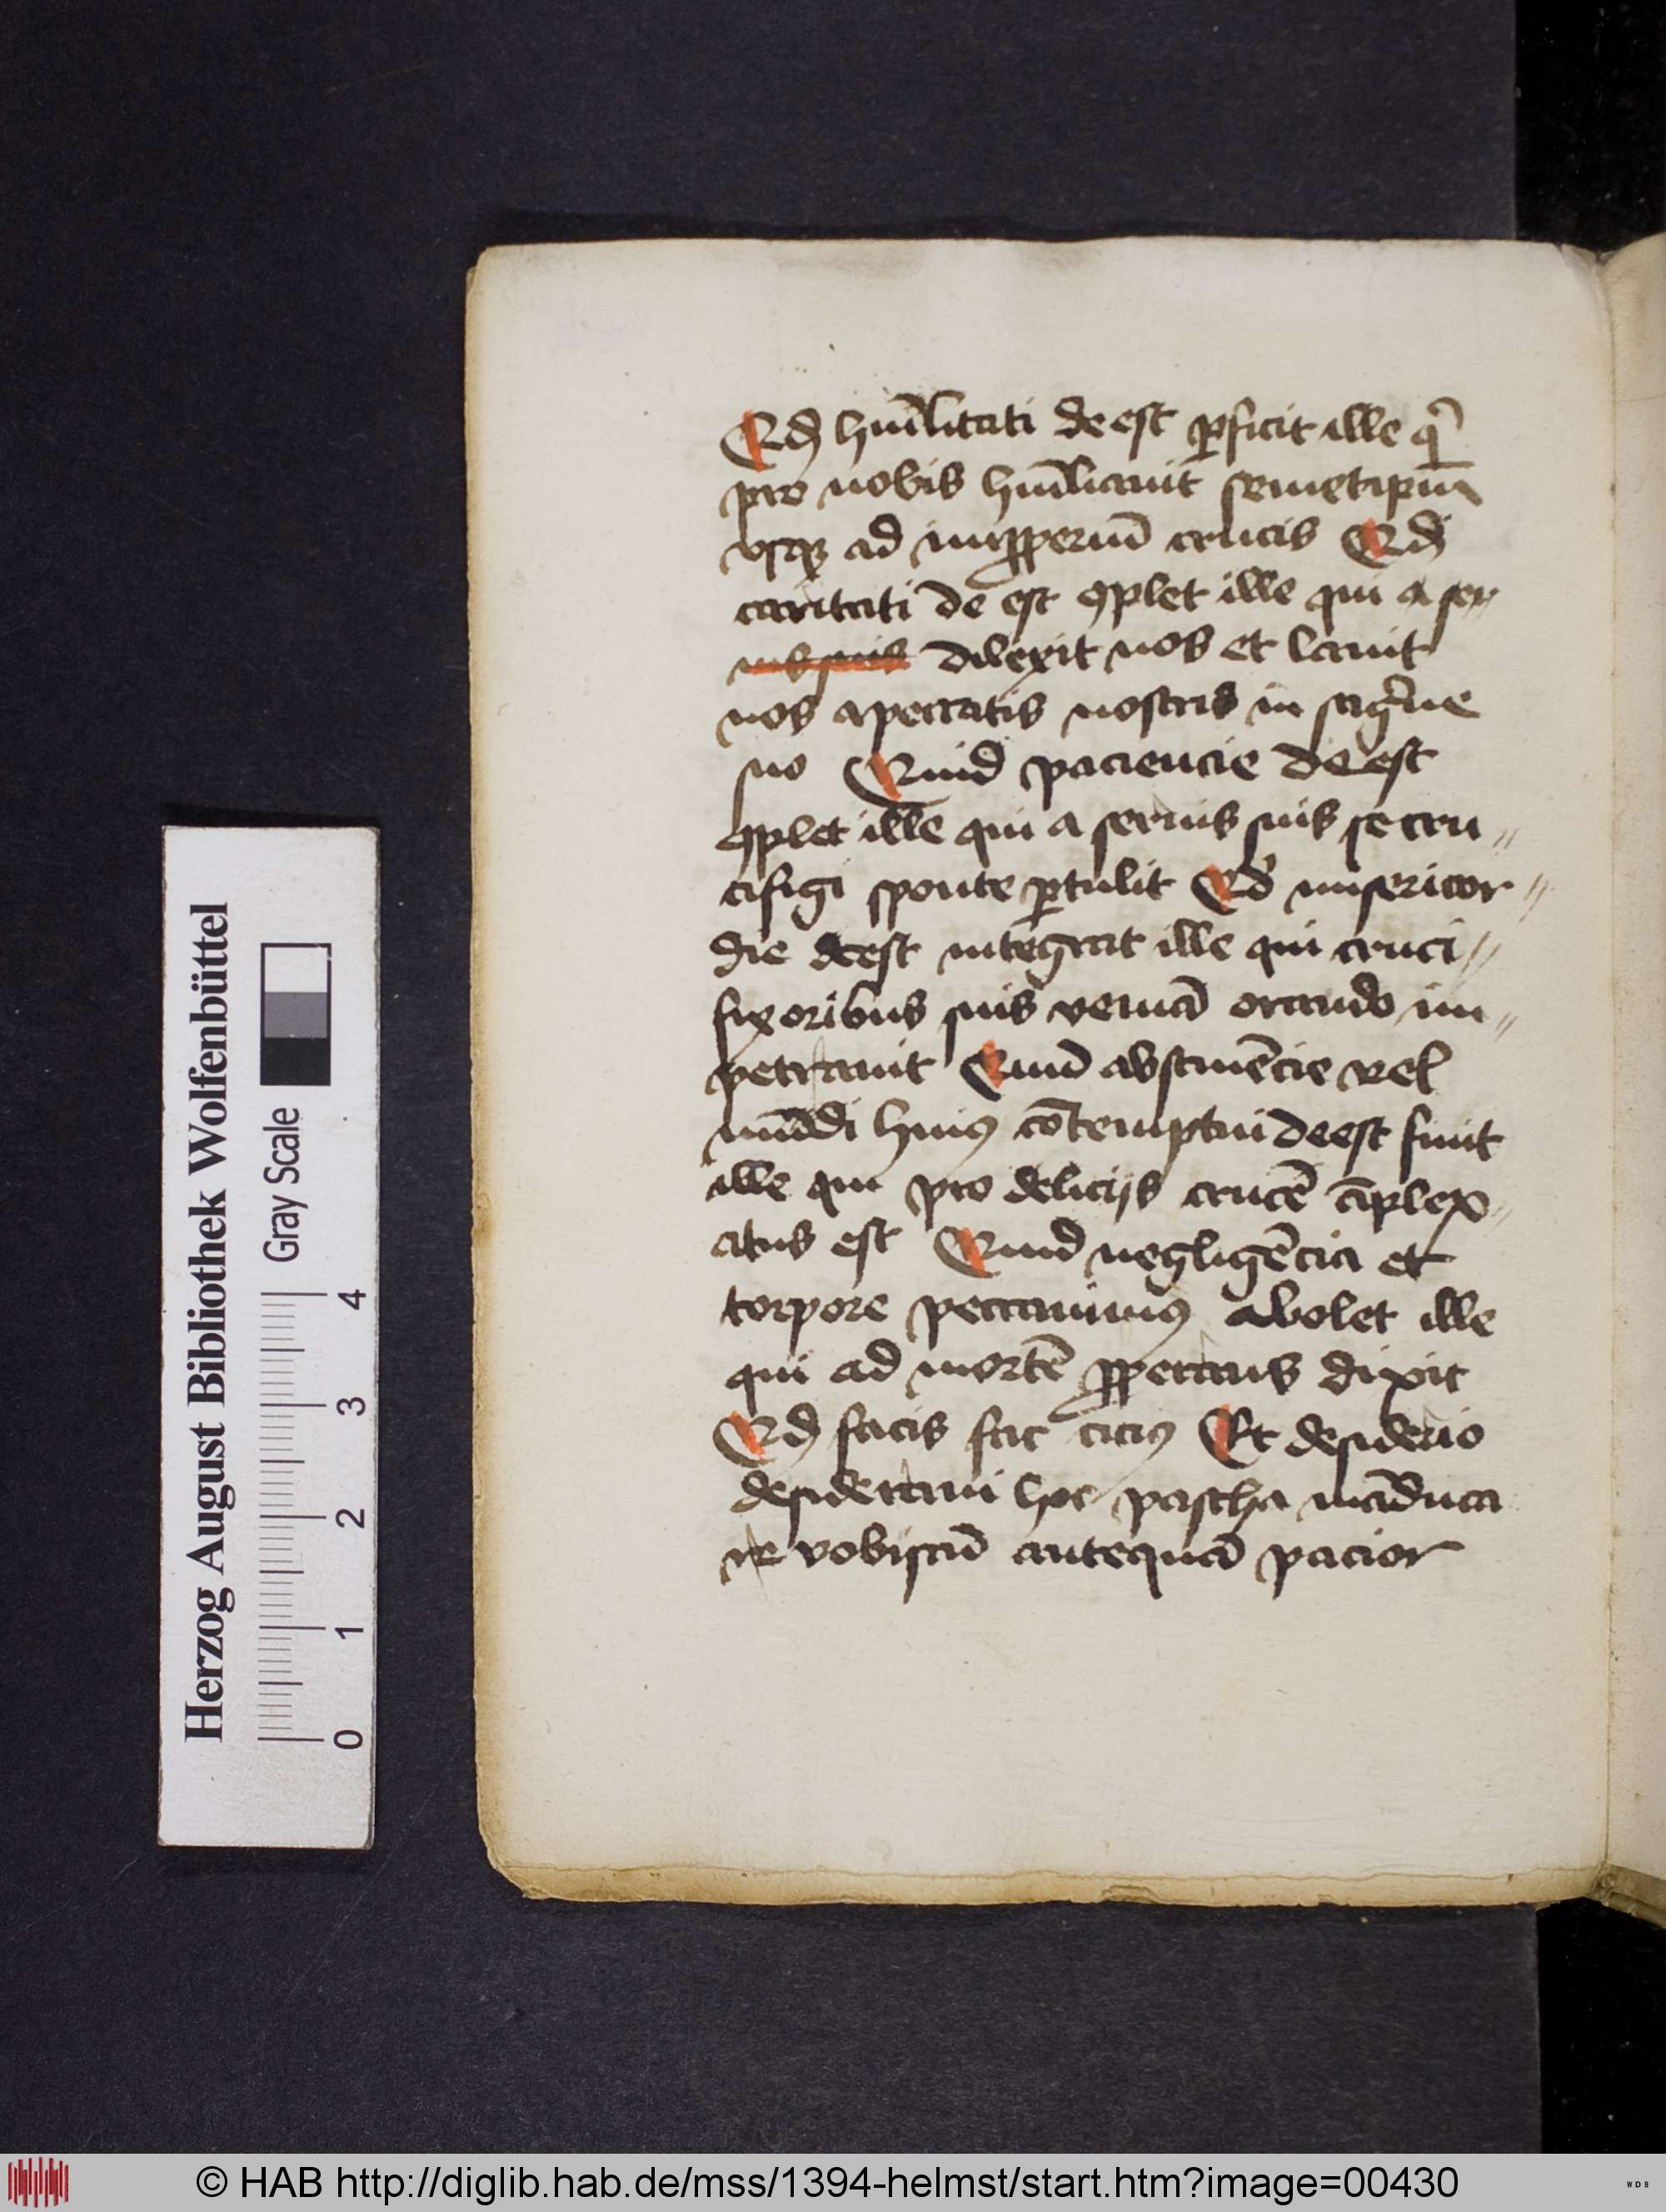 Qd hūilitati de est ꝑficit ille qͥ
pro nobis hūiliauit semetipm̄
vsqꝫ ad inꝓperiū crucis Qd
caritati de est ꝯplet ille qui a ser〃
uis suis dilexit nos et lauit
nos a peccatis nostris in saḡine
suo Quid paciencie de est
ꝯplet ille qui a seruis suis se cru〃
cifigi sponte ꝑtulit Qd misericor〃
die deest integrat ille qui cruci〃
fixoribus suis veniā orando im〃
petrauit Quid abstinēcie vel
mūdi huiꝰ cōtemptui deest finit
ille qui pro delicijs crucē āplex〃
atus est Quid negligēcia et
torpore peccauimꝰ abolet ille
qui ad mortē ꝓperans dixit
Qd facis fac ciciꝰ Et desiderio
desideraui hoc pascha māduca
re vobiscū antequā pacior
Herzog August Bibliothek Wolfenbüttel
Gray Scale
0 1 2 3 4
© HAB http://diglib.hab.de/mss/1394-helmst/start.htm?image=00430
WDB